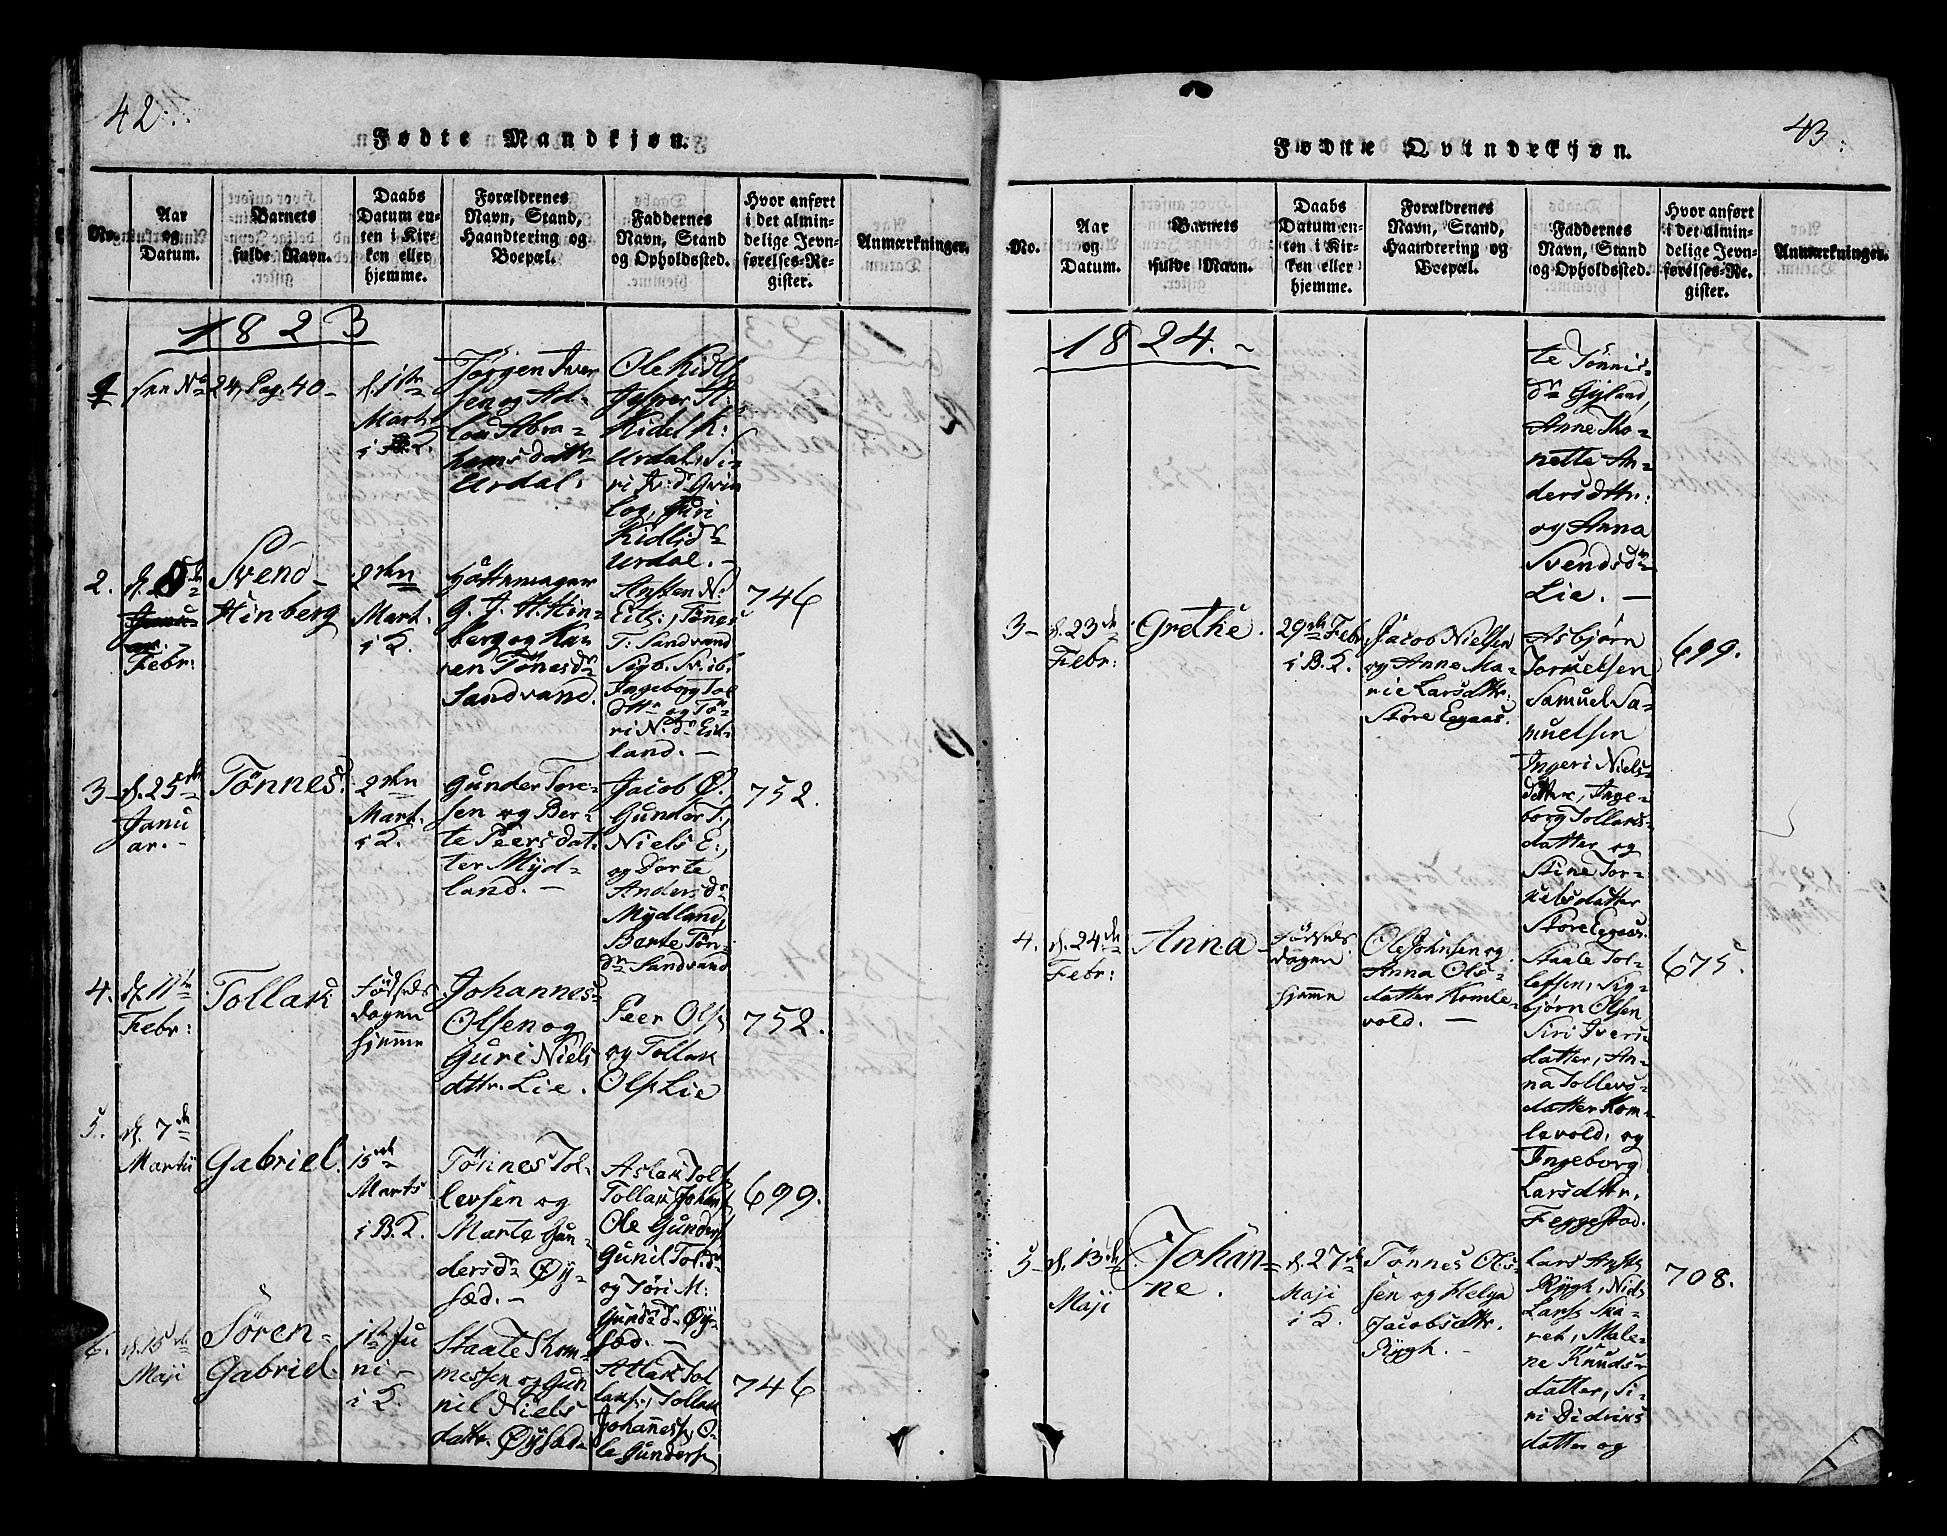 42.
Fødte Mandkjøn.
No.
Aar
og
Datum.
Barnets
fulde Navn.
Daabs
Datum en-
ten i Kir-
ken eller
hjemme.
Forældrenes
Navn, Stand,
Haandtering og
Boepæl.
Faddernes
Navn, Stand
og Opholdssted.
Hvor anført
i det almin-
delige Jevn-
førelses-Re-
gister.
Anmærkninger.
1823
1
see No 24, Pag. 40-
d. 1ste
Mart.
Jørgen Iver
sen og
Abra-
hams datter
Urdal.
Ole Kidls
Kidel K:
Urdal, Si-
ri
Kidlsdr
Urdal. -
2.
d. 8de
Febr:
Svend-
Hinberg
2den
Mart.
i K.
G. J. H. Hin-
berg og Ka-
ren Tönesdr
Sandvand.
Tönes
T: Sandvand
Ingeborg Tol
dttr og Tö-
ri N. dr Eit-
land. -
746
3-
d. 25de
Janu
ar. -
Tönnes.
2den
Mart.
i K.
Gunder Tore-
sen og Ber-
te Peersdat-
ter Myd-
land. -
Jacob Ø.,
Gunder T.,
Niels E:,
og Dorte
Anders dr
Mydland,
Berte Tön-
dr Sandvand
752.
4.
d. 11te
Febr:
Tollak
Fødseds
dagen
hjemme
Johannes
Olsen og
Guri Niels
dttr. Lie.
Peer Ols
og Tollak
Ols Lie
752.
5.
d. 7de
Martii
Gabriel.
15de
Marts
i B.K.
Tönnes Tol-
levsen og
Marte Gun-
dersdr Øy-
sæd. -
Aslak Tols
Tollak Johans
Ole Gunders
Gunil Tol. dr
og Töri M:
Gunder d. Øy-
sæd. -
699.
6.
d. 15de
Maji
Sören-
Gabriel.
1ste Ju
ni -
i K.
Staale Thom-
messen og Gun
nil Niels
dattr. Øysæd-
Aslak Tol
laks, Tollak
Johanness, O-
le Gunders
746
43.
Fødte Qvindekjøn.
No.
Aar
og
Datum.
Barnets
fulde Navn.
Daabs
Datum en-
ten i Kir-
ken eller
hjemme.
Forældrenes
Navn, Stand,
Haandtering og
Boepæl.
Faddernes
Navn, Stand
og Opholdssted.
Hvor anført
i det almin-
delige Jevn-
førelses-Re-
gister.
Anmærkninger.
1824.-
te Tönnis-
dr Gyland,
Anne Tho-
nette An-
ders dttr:
og Anna
Svendsdr
Lie. -
3-
d. 23de
Febr:
Grethe.
29de Febr
i B.K.
Jacob Nielsen
og Anne Ma-
rie Larsdttr:
Store Egaas.
Asbjørn
Torkelsen
Samuel Sa-
muelsen
Ingeri Niels-
dattre, Inge-
borg Tollaks-
datter og
Stine Tor-
kelsdatter
Store Egaas.
699.
4.
d. 24de
Febr:
Anna
Fødseds
dagen
hjemme
Ole Johnsen og
Anna Ols-
datter Komle-
vold. -
Staale Tol-
lefsen, Sig-
bjørn Olsen
Siri Ivers
datter, An-
na Tollevs-
datter Kom-
levold, og
Ingeborg
Larsdttr.
Feggestad.
675.
5-
d. 13de
Maji
Johan-
ne.
d. 27de
Maji
i K.
Tönnes Ol-
sen og Helga
Jacobsdttr.
Rygh. -
Lars
Rygh, Niels
Lars Ska-
ret, Male-
ne Knuds-
datter, Si-
ri Didriks
datter og
708.